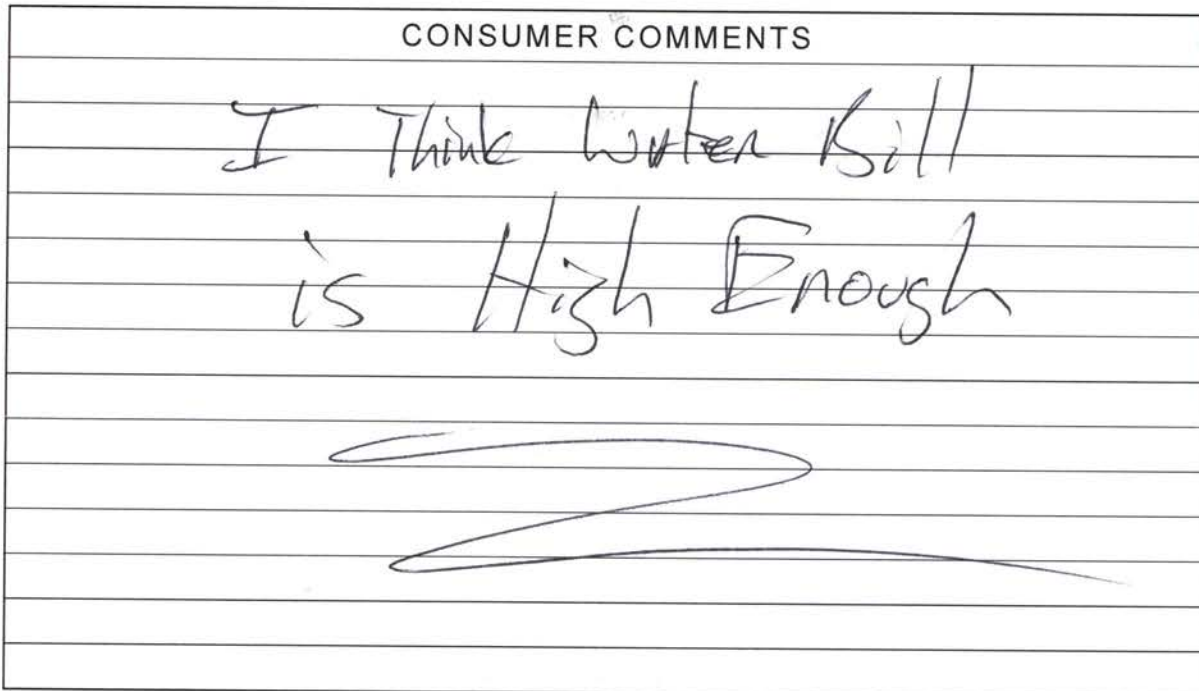 CONSUMER COMMENTS
I Think Water Bill
is High Enough